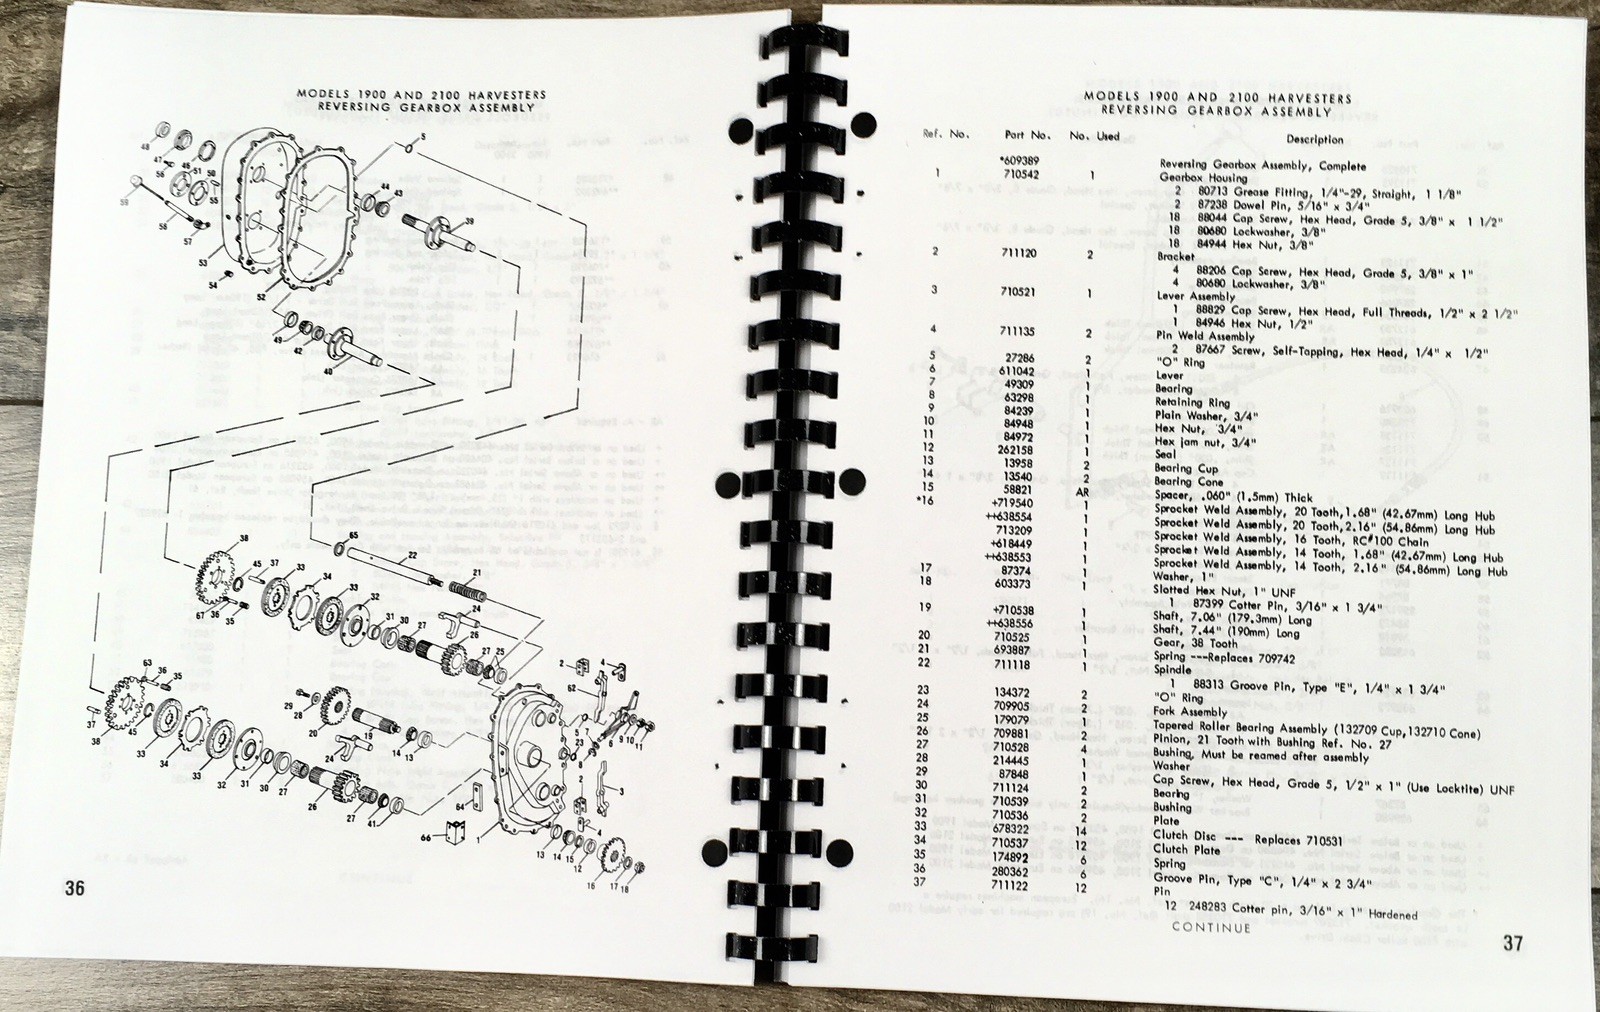 MODELS 1900 AND 2100 HARVESTERS
REVERSING GEARBOX ASSEMBLY
5
48
47
46
56
51
50
55
59
58
57
53
54
52
44
43
39
49
42
40
38
45
37
33
34
33
32
31
30
27
26
27
25
67
36
35
65
22
21
24
63
36
35
37
38
45
33
34
33
32
31
30
27
26
27
41
29
28
20
19
24
14
13
2
4
62
5
7
23
8
6
9
10
11
2
3
4
64
66
1
13
14
15
12
16
17
18
36
MODELS 1900 AND 2100 HARVESTERS
REVERSING GEARBOX ASSEMBLY
Ref. No. Part No. No. Used Description
*609389 Reversing Gearbox Assembly, Complete
1 710542 1 Gearbox Housing
2 80713 Grease Fitting, 1/4"-29, Straight, 1 1/8"
2 87238 Dowel Pin, 5/16" x 3/4"
18 88044 Cap Screw, Hex Head, Grade 5, 3/8" x 1 1/2"
18 80680 Lockwasher, 3/8"
18 84944 Hex Nut, 3/8"
2 711120 2 Bracket
4 88206 Cap Screw, Hex Head, Grade 5, 3/8" x 1"
4 80680 Lockwasher, 3/8"
3 710521 1 Lever Assembly
1 88829 Cap Screw, Hex Head, Full Threads, 1/2" x 2 1/2"
1 84946 Hex Nut, 1/2"
4 711135 2 Pin Weld Assembly
2 87667 Screw, Self-Tapping, Hex Head, 1/4" x 1/2"
5 27286 2 "O" Ring
6 611042 1 Lever
7 49309 1 Bearing
8 63298 1 Retaining Ring
9 84239 1 Plain Washer, 3/4"
10 84948 1 Hex Nut, 3/4"
11 84972 1 Hex jam nut, 3/4"
12 262158 1 Seal
13 13958 2 Bearing Cup
14 13540 2 Bearing Cone
15 58821 AR Spacer, .060" (1.5mm) Thick
*16 +719540 1 Sprocket Weld Assembly, 20 Tooth,1.68" (42.67mm) Long Hub
++638554 1 Sprocket Weld Assembly, 20 Tooth,2.16" (54.86mm) Long Hub
713209 1 Sprocket Weld Assembly, 16 Tooth, RC#100 Chain
+618449 1 Sprocket Weld Assembly, 14 Tooth, 1.68" (42.67mm) Long Hub
++638553 1 Sprocket Weld Assembly, 14 Tooth, 2.16" (54.86mm) Long Hub
17 87374 1 Washer, 1"
18 603373 1 Slotted Hex Nut, 1" UNF
1 87399 Cotter Pin, 3/16" x 1 3/4"
19 +710538 1 Shaft, 7.06" (179.3mm) Long
++638556 1 Shaft, 7.44" (190mm) Long
20 710525 1 Gear, 38 Tooth
21 693887 1 Spring ---Replaces 709742
22 711118 1 Spindle
1 88313 Groove Pin, Type "E", 1/4" x 1 3/4"
23 134372 2 "O" Ring
24 709905 2 Fork Assembly
25 179079 1 Tapered Roller Bearing Assembly (132709 Cup,132710 Cone)
26 709881 2 Pinion, 21 Tooth with Bushing Ref. No. 27
27 710528 4 Bushing, Must be reamed after assembly
28 214445 1 Washer
29 87848 1 Cap Screw, Hex Head, Grade 5, 1/2" x 1" (Use Locktite) UNF
30 711124 2 Bearing
31 710539 2 Bushing
32 710536 2 Plate
33 678322 14 Clutch Disc --- Replaces 710531
34 710537 12 Clutch Plate
35 174892 6 Spring
36 280362 6 Groove Pin, Type "C", 1/4" x 2 3/4"
37 711122 12 Pin
12 248283 Cotter pin, 3/16" x 1" Hardened
CONTINUE
37